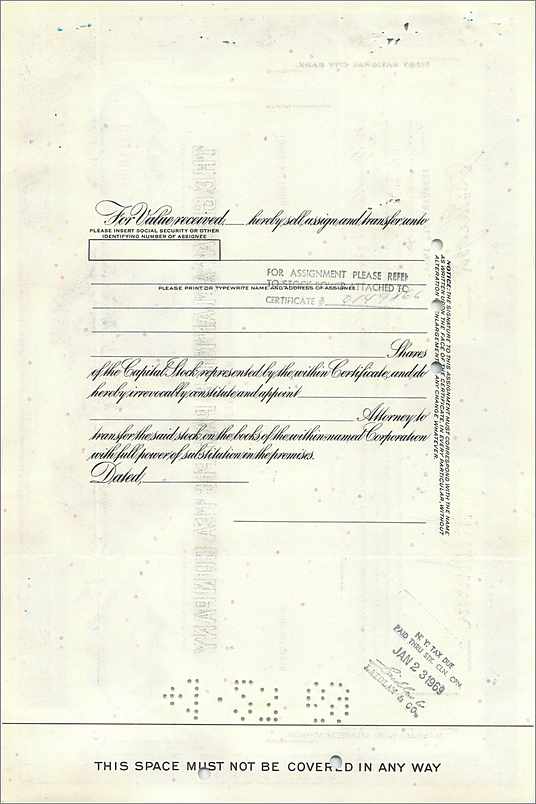 For Value received, hereby sell, assign and transfer unto
PLEASE INSERT SOCIAL SECURITY OR OTHER
IDENTIFYING NUMBER OF ASSIGNEE
FOR ASSIGNMENT PLEASE REFER
TO STOCK POWER ATTACHED TO
PLEASE PRINT OR TYPEWRITE NAME AND ADDRESS OF ASSIGNEE
CERTIFICATE #
Shares
of the Capital Stock represented by the within Certificate, and do
hereby irrevocably constitute and appoint
Attorney to
transfer the said stock on the books of the within-named Corporation
with full power of substitution in the premises.
Dated,
NOTICE: THE SIGNATURE TO THIS ASSIGNMENT MUST CORRESPOND WITH THE NAME
AS WRITTEN UPON THE FACE OF THE CERTIFICATE, IN EVERY PARTICULAR, WITHOUT
ALTERATION OR ENLARGEMENT, OR ANY CHANGE WHATEVER.
N. Y. TAX DUE
PAID THRU STK. CLN. CPN.
JAN 23 1969
LAIDLAW & CO.
THIS SPACE MUST NOT BE COVERED IN ANY WAY